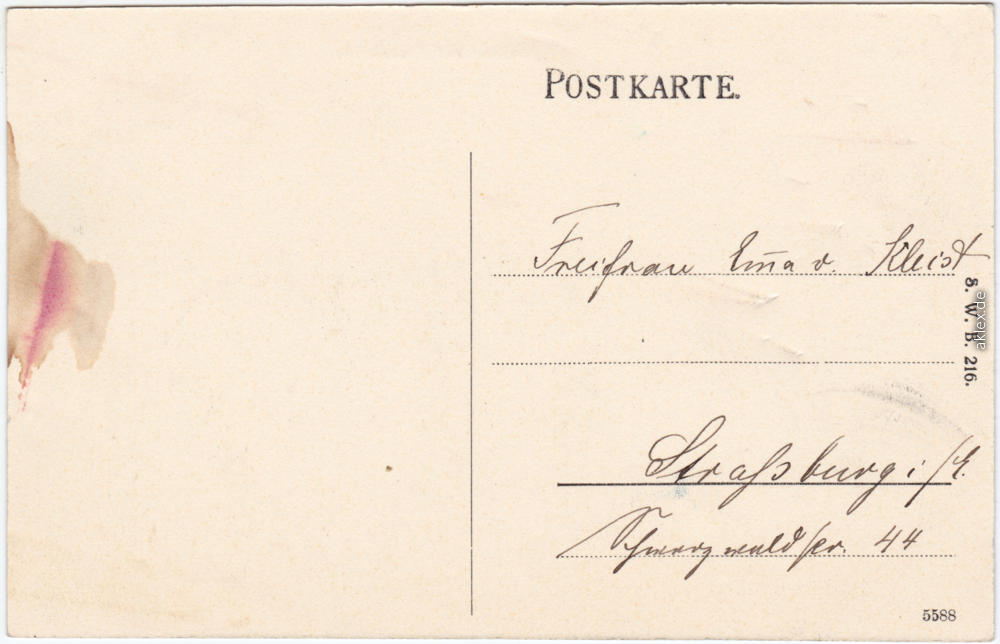 POSTKARTE.
Freifrau Em̅a v. Kleist
Straßburg i/E.
Schwarzwaldstr. 44
S. W. B. 216.
aklex.de
5588